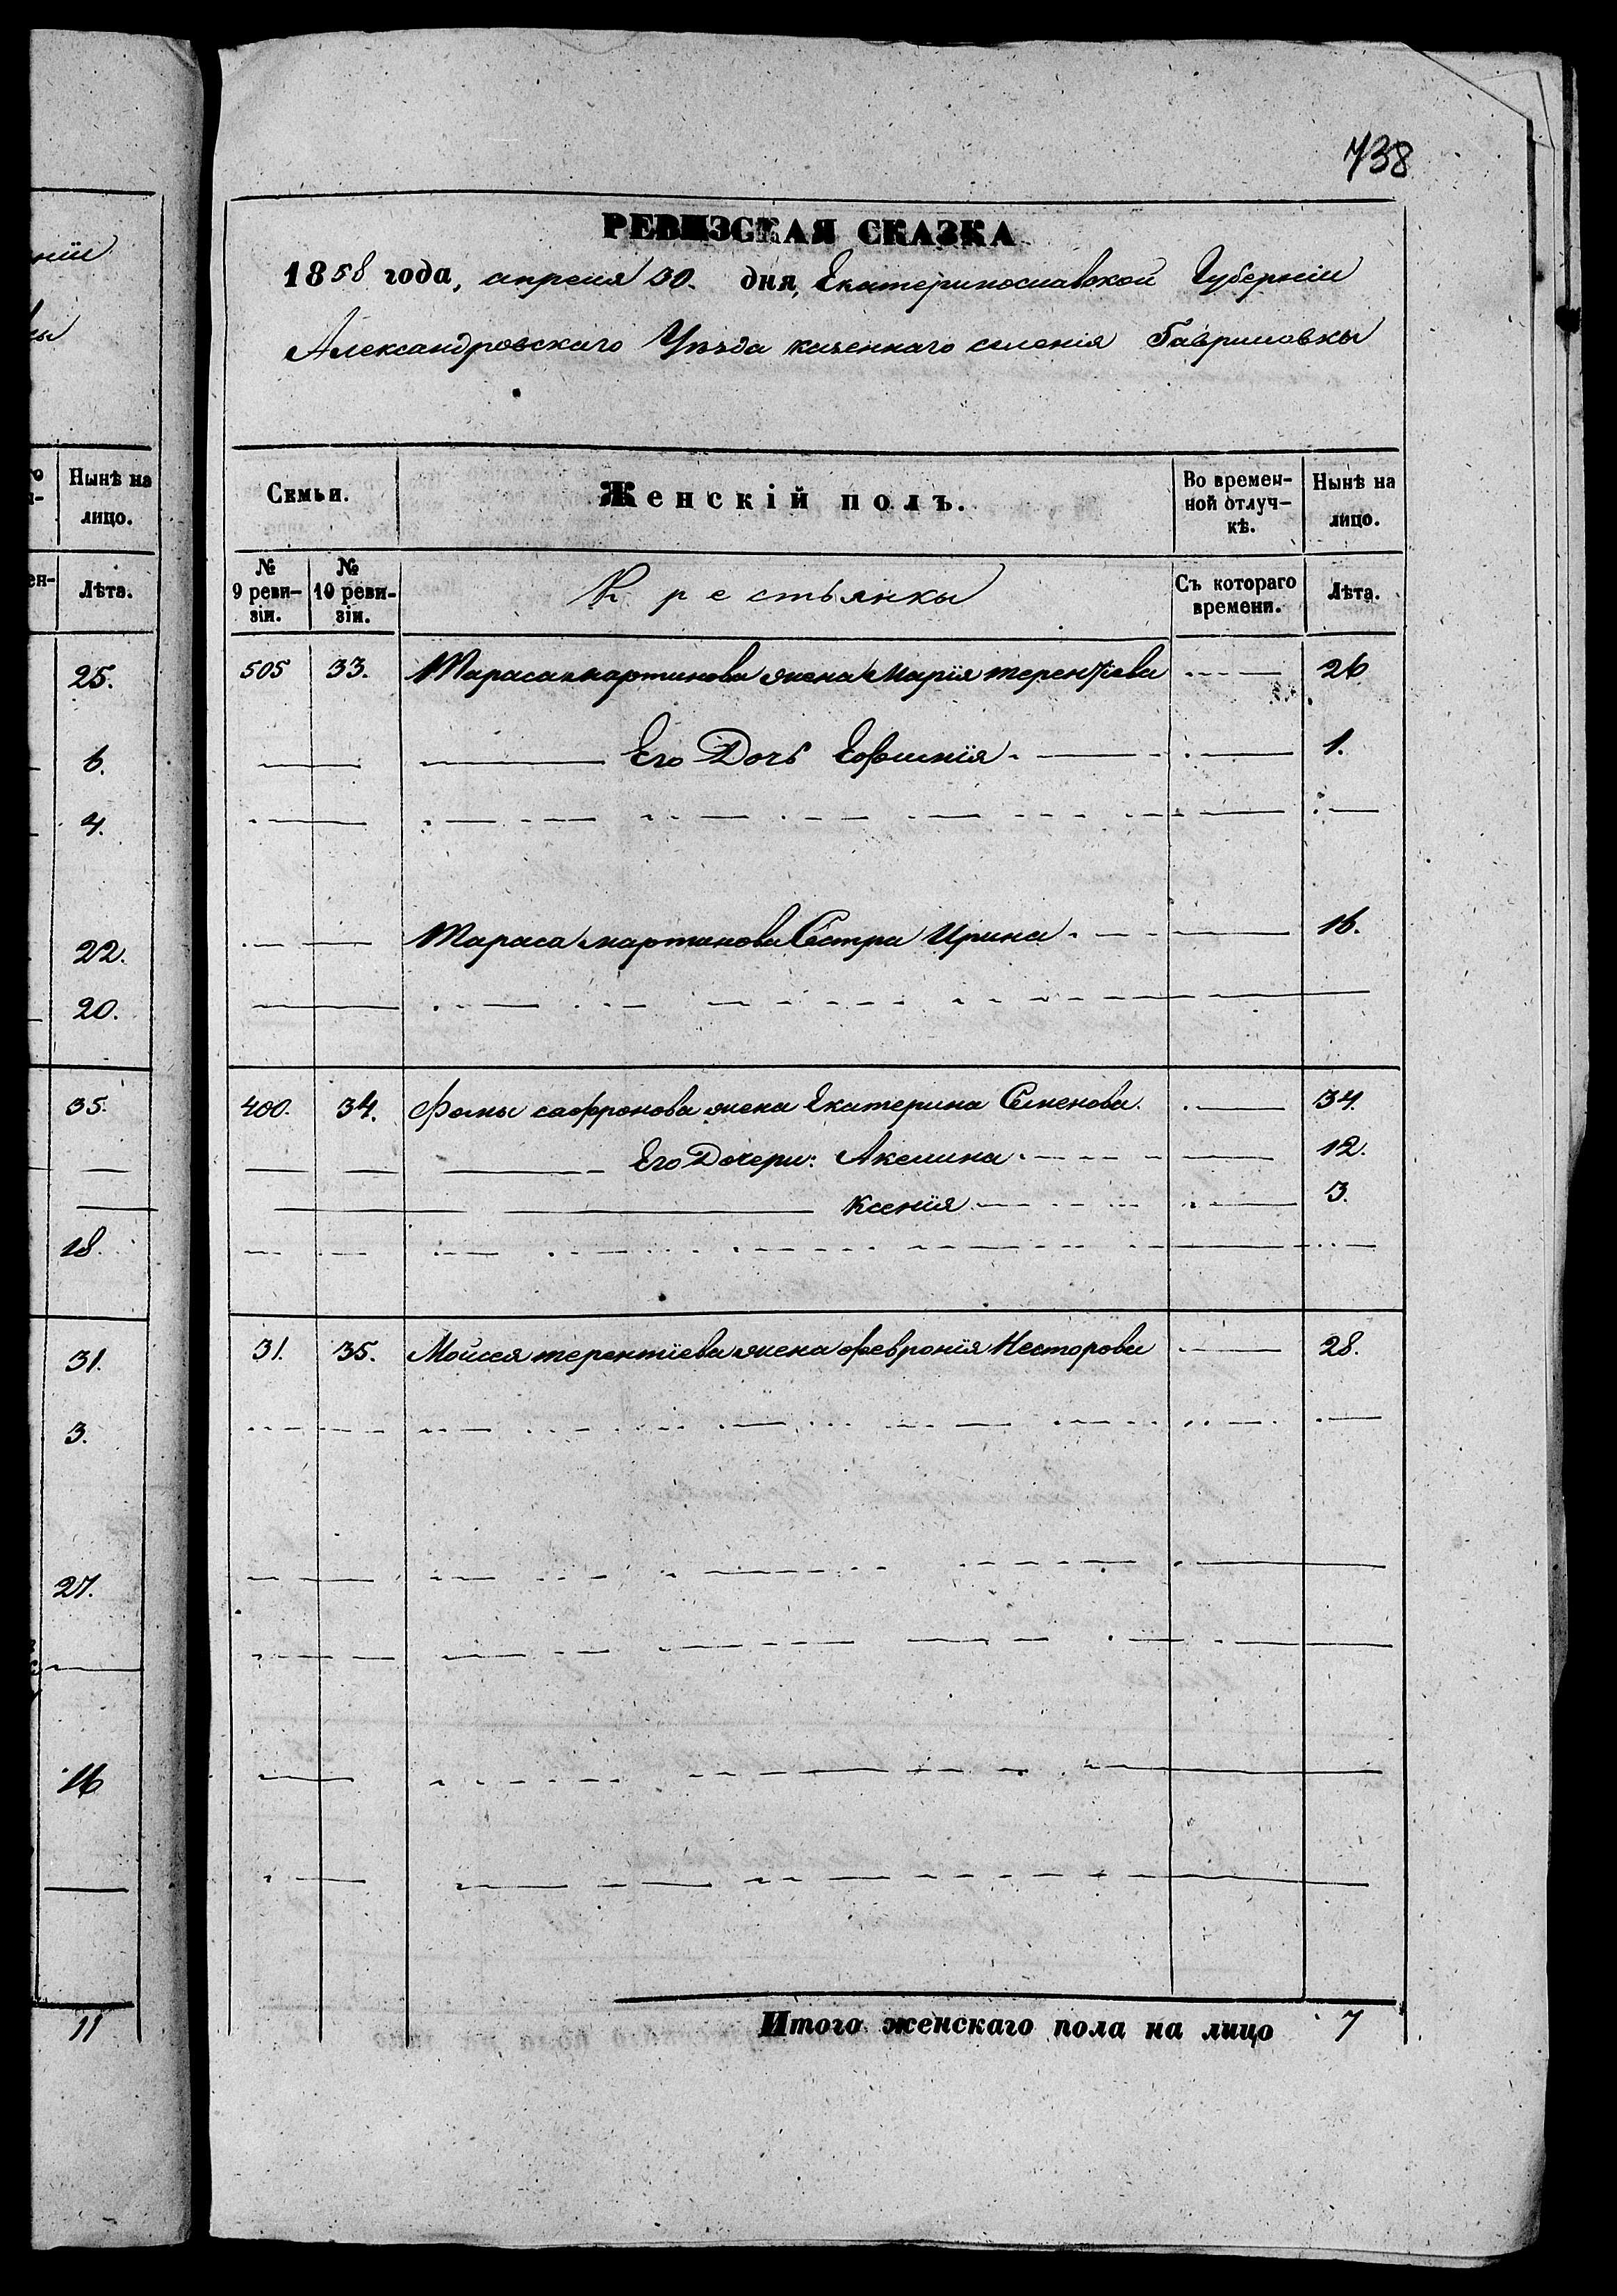 нiи
ы
го
Нынѣ на
лицо.
ен-
Лѣта.
25.
6.
4.
22.
20.
35.
18.
31.
3.
27.
16
11
738
РЕВИЗСКАЯ СКАЗКА
1858 года, апреля 30. дня, Екатеринославской Губернiи
Александровскаго Уѣзда казеннаго селенiя Гавриловки
Семьи.
Женскiй полъ.
Во времен-
ной отлуч-
кѣ.
Нынѣ на
лицо.
№
9 реви-
зiи.
№
10 реви-
зiи.
Крестьянки
Съ котораго
времени.
Лѣта.
505 33. Тараса мартинова жена Марiя терентiева 26
Его Дочь Евфимiя 1.
Тараса мартинова Сестра Ирина 16.
400. 34. Фомы сафронова жена Екатерина Семенова 34.
Его Дочери: Акелина 12.
Ксенiя 3.
31. 35. Мойсея терентiева жена февронiя Несторова 28.
Итого женскаго пола на лицо 7